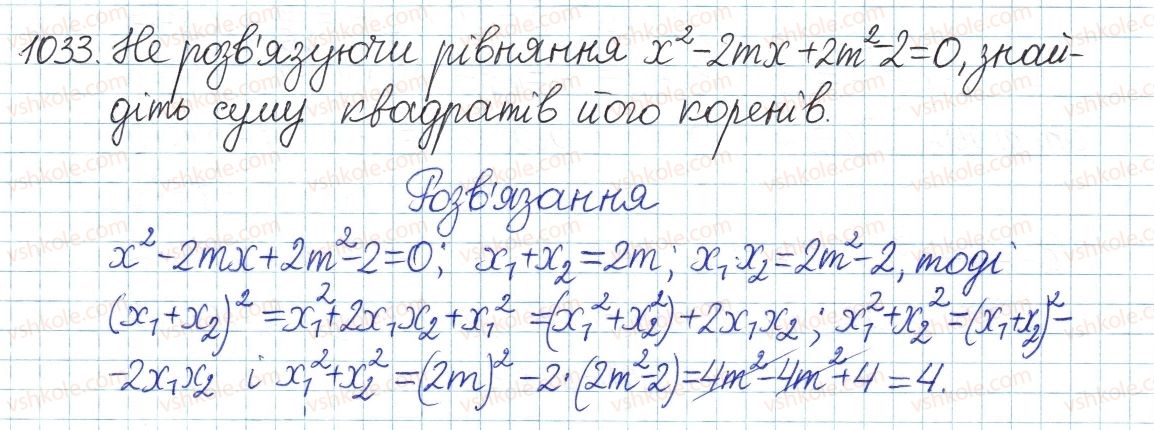 1033. Не розв'язуючи рівняння x² - 2mx + 2m² - 2 = 0, знай-
діть суму квадратів його коренів.
Розв'язання
x² - 2mx + 2m² - 2 = 0; x₁ + x₂ = 2m; x₁·x₂ = 2m² - 2, тоді
(x₁ + x₂)² = x₁² + 2x₁x₂ + x₁² = (x₁² + x₂²) + 2x₁x₂; x₁² + x₂² = (x₁ + x₂)² -
- 2x₁x₂ і x₁² + x₂² = (2m)² - 2·(2m² - 2) = 4m² - 4m² + 4 = 4.